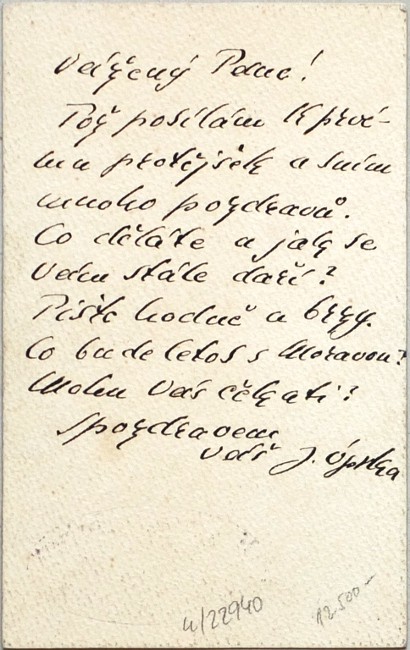 Vážený Pane!
Též posílám k prvé-
mu protějšek a s ním
mnoho pozdravů.
Co děláte a jak se
Vám stále daří?
Pište hodně a brzy.
Co bude letos s Moravou?
Mohu Vás čekati?
S pozdravem
Váš J. Úprka
4/22940
12.500–